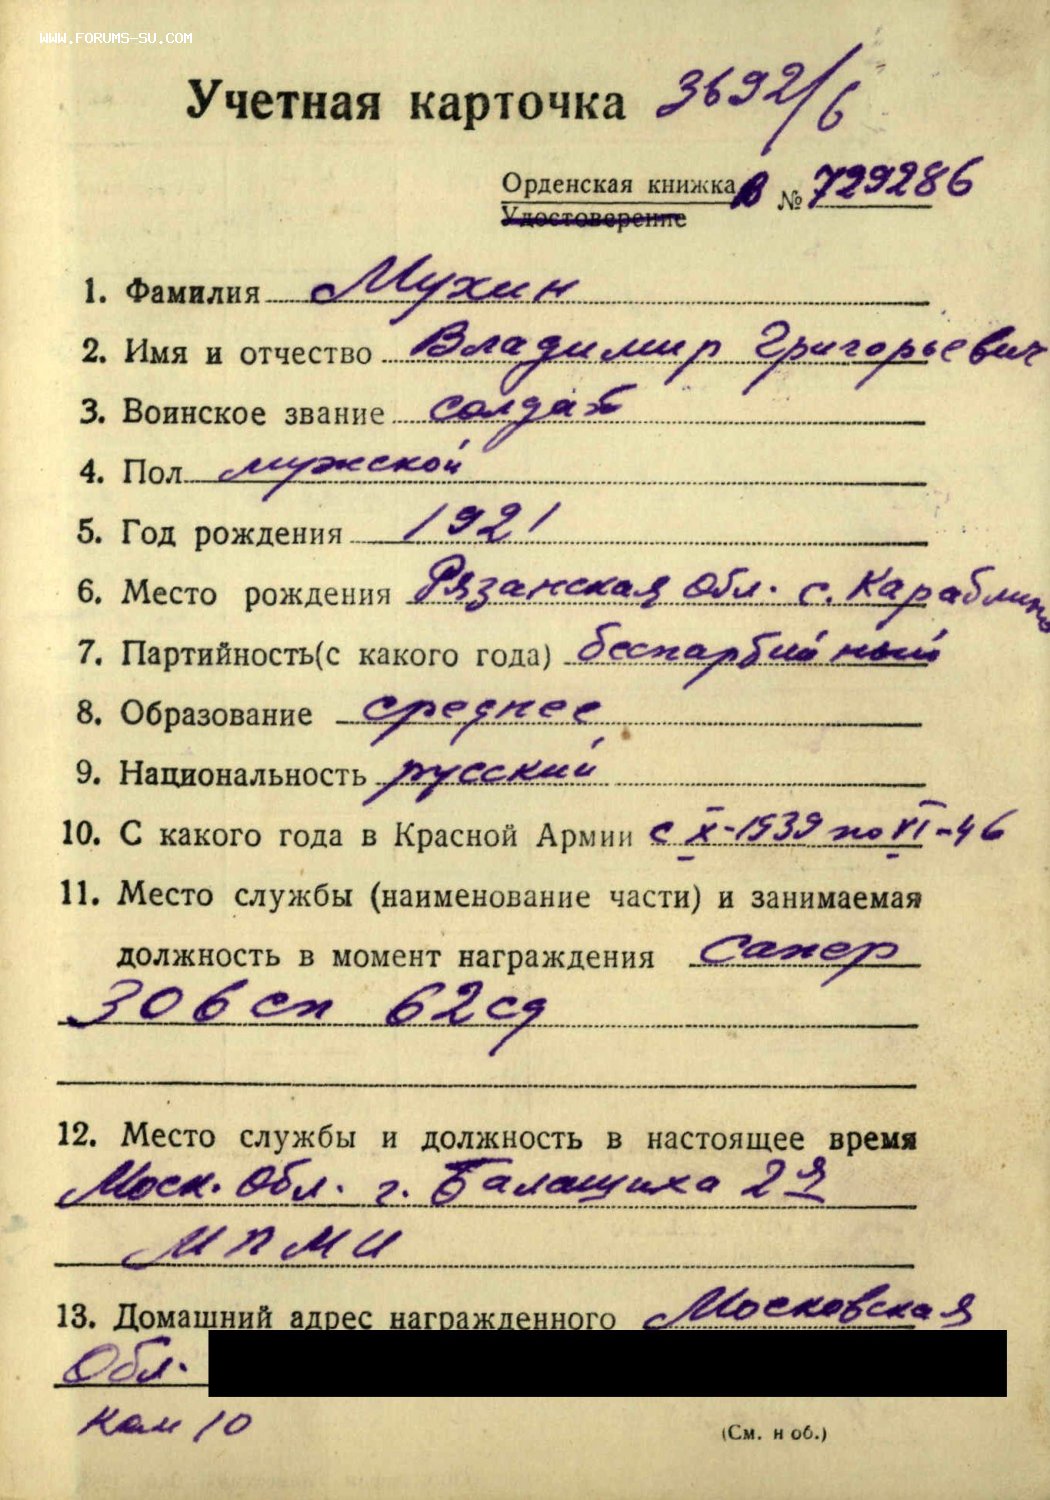 WWW.FORUMS-SU.COM
Учетная карточка 3692/6
Орденская книжка В № 729286
Удостоверение
1. Фамилия Мухин
2. Имя и отчество Владимир Григорьевич
3. Воинское звание солдат
4. Пол мужской
5. Год рождения 1921
6. Место рождения Рязанская обл. с. Караблино
7. Партийность (с какого года) беспартийный
8. Образование среднее
9. Национальность русский
10. С какого года в Красной Армии с X-1939 по VI-46
11. Место службы (наименование части) и занимаемая
должность в момент награждения сапер
306 сп 62 сд
12. Место службы и должность в настоящее время
Моск. Обл. г. Балашиха 2я
МПМИ
13. Домашний адрес награжденного Московская
Обл.
Ком 10
(См. н об.)